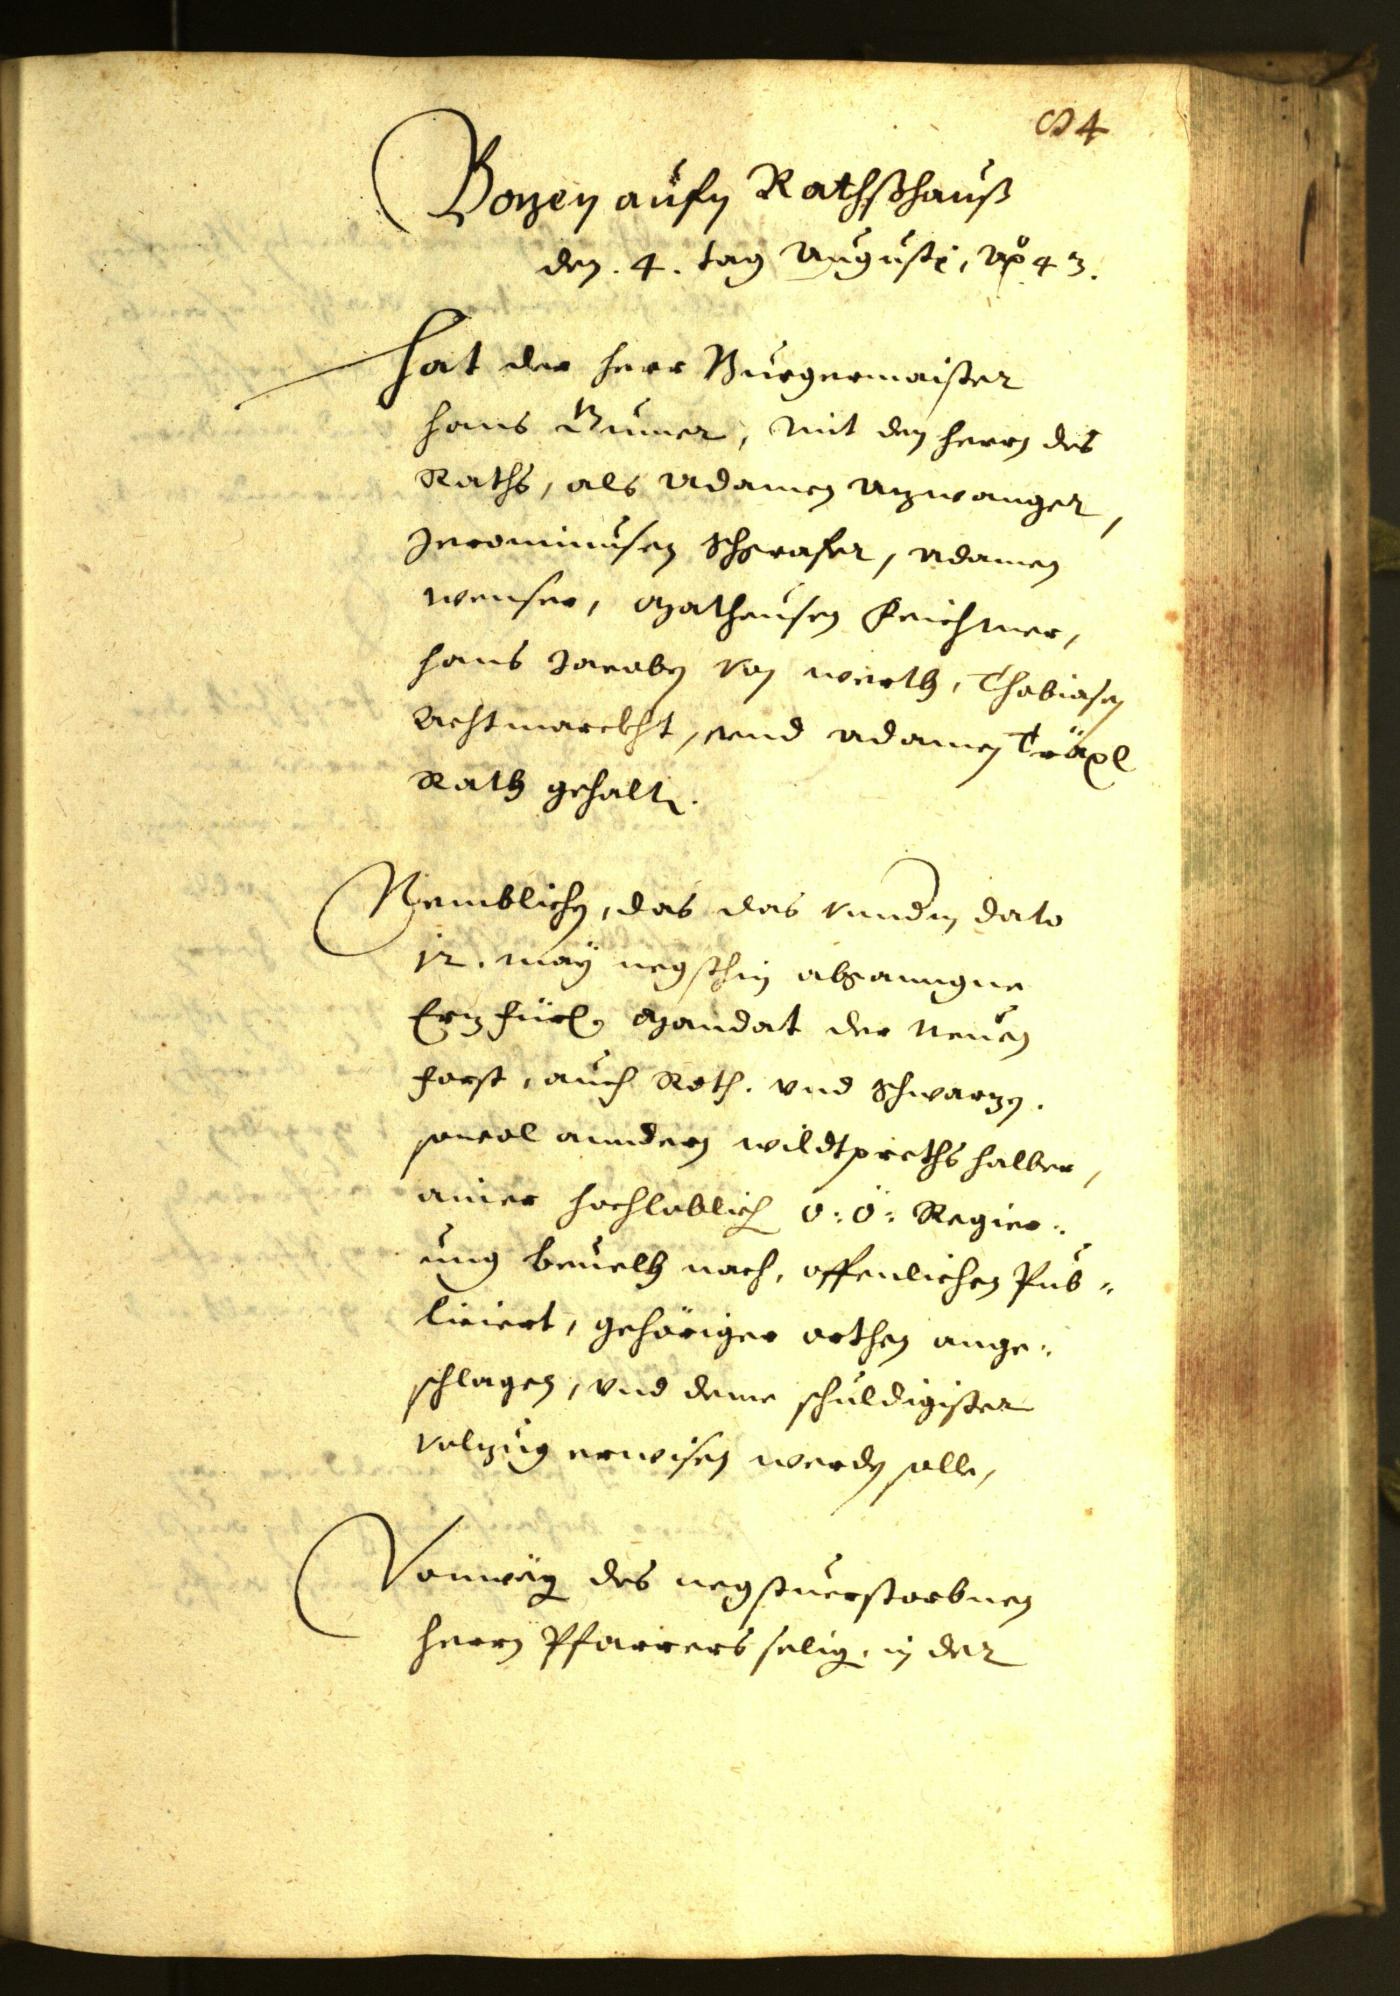 84
Bozen aufn Rathshauß
den. 4. tag Augusti, Aº 43.
Hat der herr Burgermaister
Hans Bumer, mit den herrn des
Raths, als Adamen Azwanger,
Jeronimusen Schgrafer, Adamen
Wenser, Matheusen Feichtner,
Hans Jacoben von Werth, Thobiasen
Achtmarckht, vnd Adamen Träxl
Rath gehalt.
Nemblichen, das das vnndern dato
12. may negsthin abganngne
Erzfürl. Mandat der Neuen
Forst, auch Roth. vnd Schwarzen.
sowol anndern wildtpreths halber,
ainer hochloblich O: Ö: Regier:
ung beuelh nach, offenlichen Pub=
liciert, gehöriger orthen ange=
schlagen, vnd deme schuldigister
volzug erwisen werden solle,
Vonwëg des negstuerstorbnen
herrn Pfarrers selig, in der